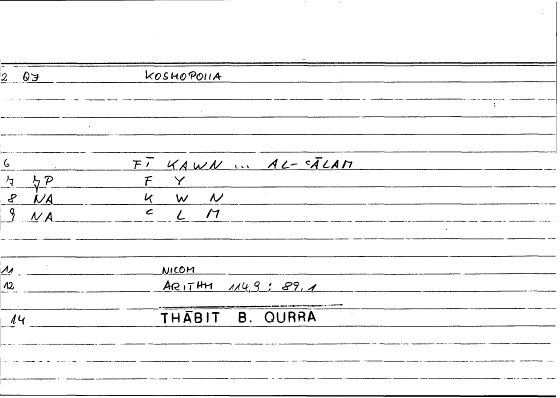 2 QJ KOSMOPOIIA
6 FĪ KAWN ... AL-ʿĀLAM
7 YP F Y
8 NA K W N
9 NA ʿ L M
11 NICOM
12 ARITHM 114,9 : 89,1
14 THĀBIT B. QURRA